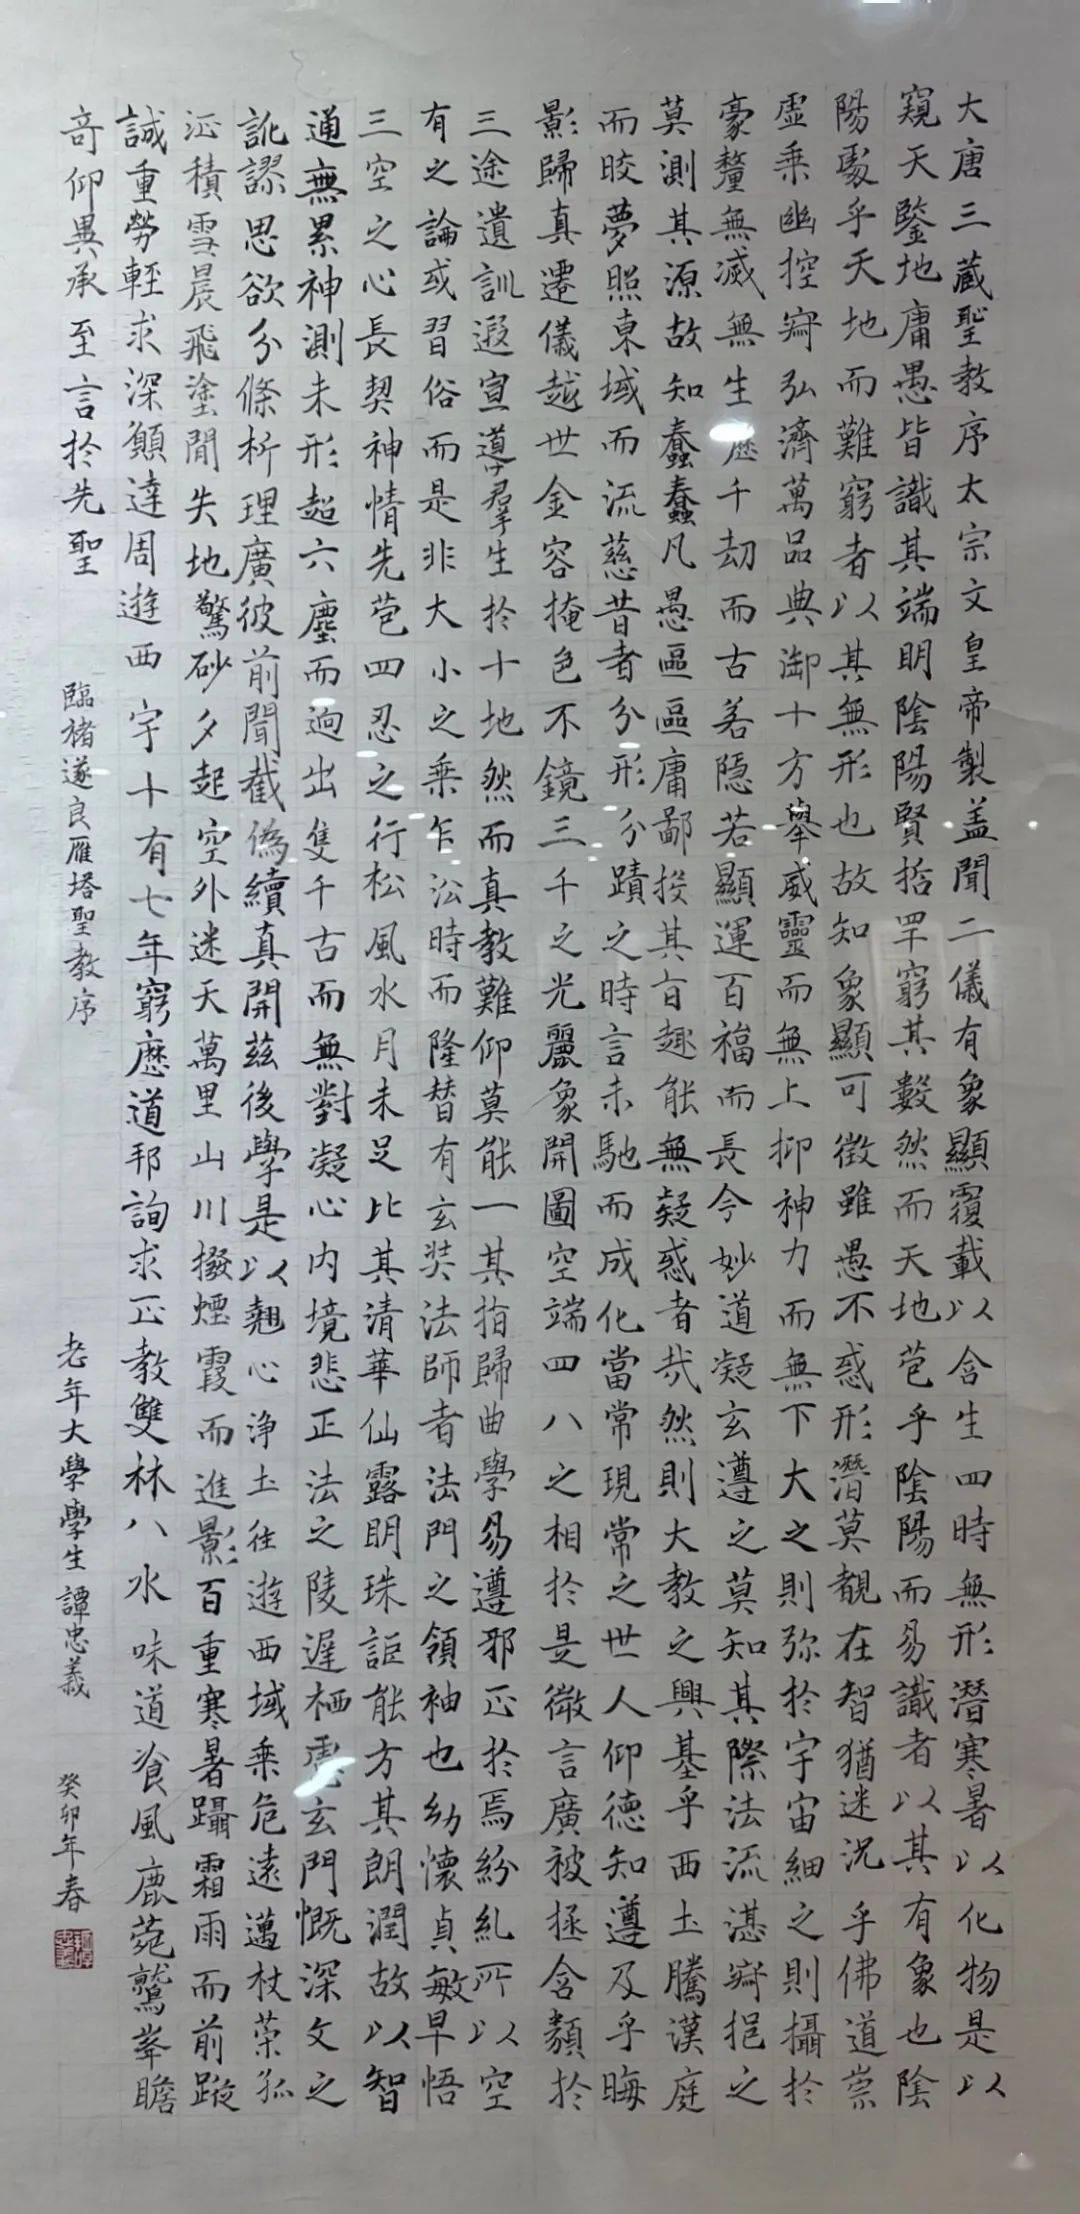 大唐三藏聖教序太宗文皇帝製盖聞二儀有象顯覆載以含生四時無形潛寒暑以化物是以
窺天鑒地庸愚皆識其端明陰陽賢哲罕窮其數然而天地苞乎陰陽而易識者以其有象也陰
陽處乎天地而難窮者以其無形也故知象顯可徵雖愚不惑形潛莫覩在智猶迷況乎佛道崇
虛乘幽控寂弘濟萬品典御十方舉威靈而無上抑神力而無下大之則弥於宇宙細之則攝於
豪釐無滅無生歷千劫而古若隱若顯運百福而長今妙道凝玄遵之莫知其際法流湛寂挹之
莫測其源故知蠢蠢凡愚區區庸鄙投其旨趣能無疑惑者哉然則大教之興基乎西土騰漢庭
而晈夢照東域而流慈昔者分形分蹟之時言未馳而成化當常現常之世人仰德知遵及乎晦
影歸真遷儀越世金容掩色不鏡三千之光麗象開圖空端四八之相於是微言廣被拯含類於
三途遺訓遐宣導群生於十地然而真教難仰莫能一其指歸曲學易遵邪正於焉紛糺所以空
有之論或習俗而是非大小之乘乍沿時而隆替有玄奘法師者法門之領袖也幼懷貞敏早悟
三空之心長契神情先苞四忍之行松風水月未足比其清華仙露明珠詎能方其朗潤故以智
通無累神測未形超六塵而迥出隻千古而無對凝心內境悲正法之陵遲栖慮玄門慨深文之
訛謬思欲分條析理廣彼前聞截偽續真開茲後學是以翹心淨土往遊西域乘危遠邁杖策孤
征積雪晨飛塗閒失地驚砂夕起空外迷天萬里山川撥煙霞而進影百重寒暑躡霜雨而前蹤
誠重勞輕求深願達周遊西宇十有七年窮歷道邦詢求正教雙林八水味道飡風鹿菀鷲峯瞻
奇仰異承至言於先聖 臨褚遂良雁塔聖教序 老年大學學生譚忠義 癸卯年春